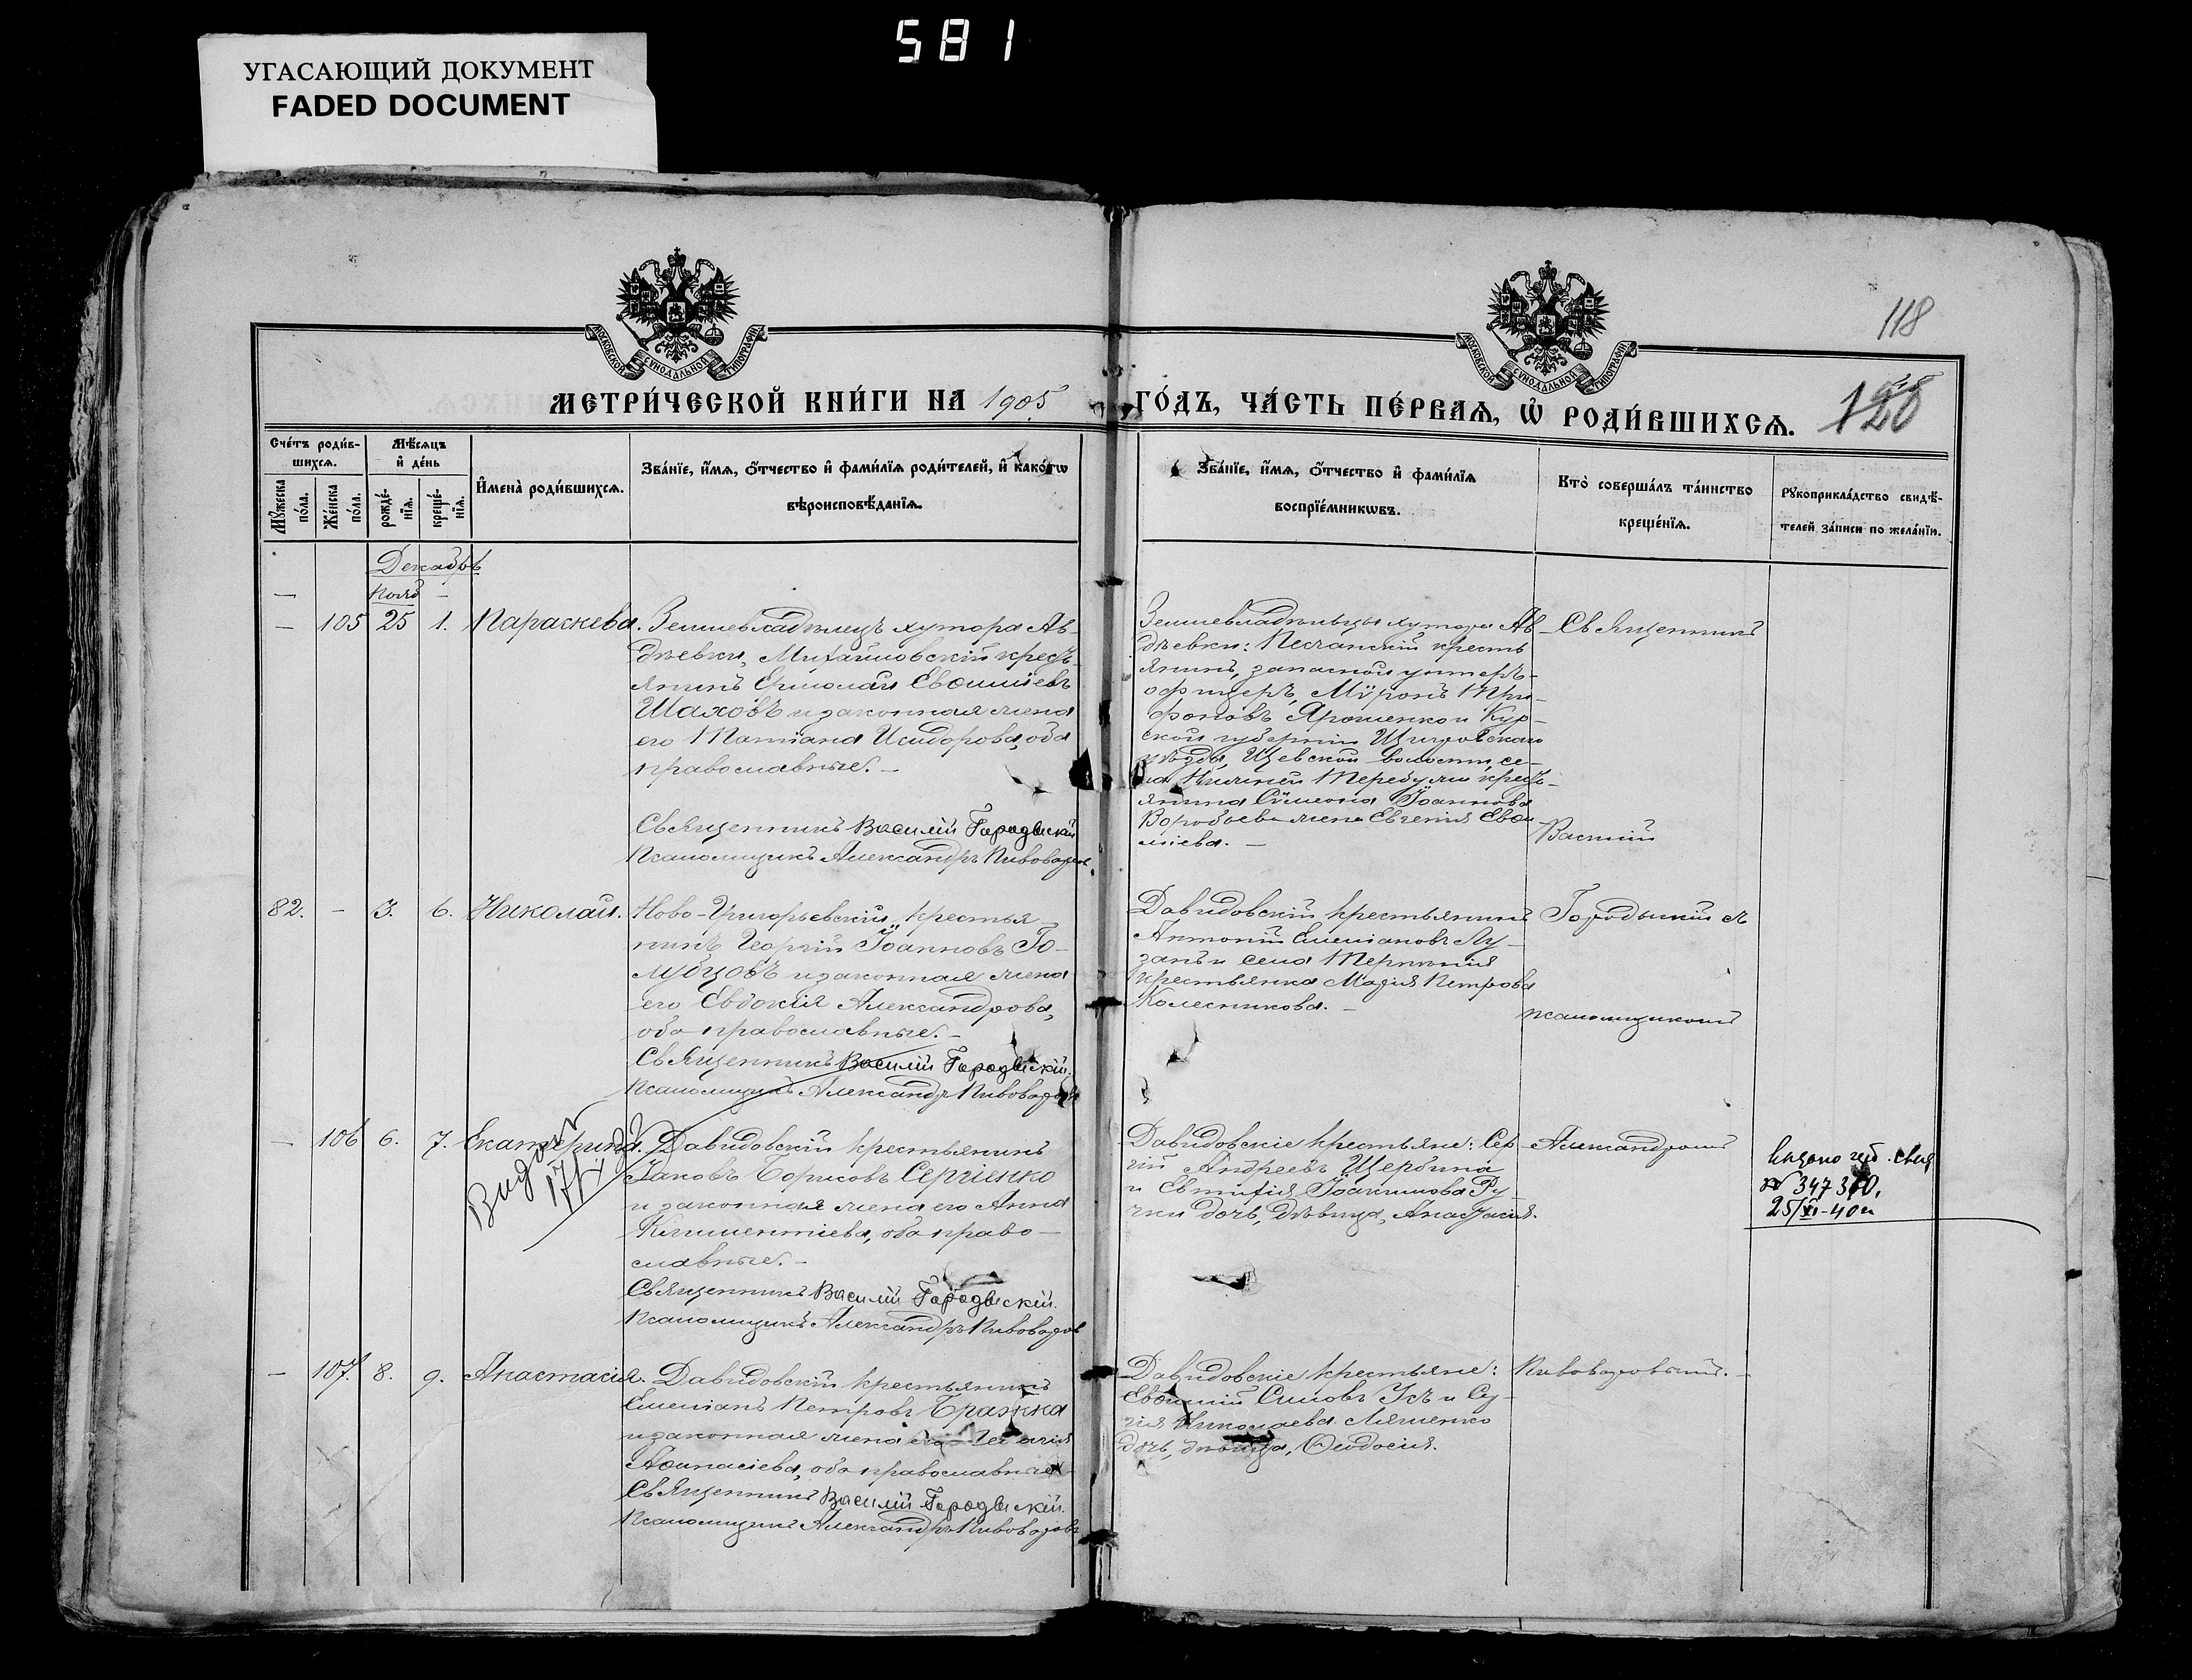 581
УГАСАЮЩИЙ ДОКУМЕНТ
FADED DOCUMENT
118
МОСКОВСКОЙ СѴНОДАЛЬНОЙ ТИПОГРАФІИ
МОСКОВСКОЙ СѴНОДАЛЬНОЙ ТИПОГРАФІИ
МЕТРИ́ЧЕСКОЙ КНИ́ГИ НА 1905
ГО́ДЪ, ЧА́СТЬ ПЕ́РВАѦ, Ѡ҆ РОДИ́ВШИХСѦ.
Сче́тъ роди́в-
шихсѧ.
Мꙋ́жеска по́ла.
Же́нска по́ла.
Мѣ́сѧцъ
и҆ де́нь
рожде́-
нїѧ.
креще́-
нїѧ.
И҆мена̀ роди́вшихсѧ.
Зва́нїе, и҆́мѧ, ѻ҆́тчество и҆ фами́лїѧ роди́телей, и҆ како́гѡ
вѣроисповѣ́данїѧ.
Зва́нїе, и҆́мѧ, ѻ҆́тчество и҆ фами́лїѧ
воспрїе́мникѡвъ.
Кто̀ соверша́лъ та́инство
креще́нїѧ.
Рꙋкоприкла́дство свидѣ́-
телей за́писи по жела́нїю.
Декабрь
Нояб -
- 105 25 1. Параскева.
Землевладѣлецъ хутора Ав-
дѣевки, Михайловскій кресть-
янинъ Ермолай Евѳиміевъ
Шаховъ и законная жена
его Татіана Исидорова, оба
православные. -
Священникъ Василій Городыскій
Псаломщикъ Александръ Пивоваровъ
Землевладѣльцы хутора Ав-
дѣевки: Песчанскій кресть
янинъ, запасной унтеръ-
офицеръ, Мѵронъ Три-
фоновъ Ярошенко и Кур-
ской губерніи Щигровскаго
уѣзда, волости, се-
ла Нижней Теребужи кресть-
янина Сѵмеона Іоаннова
Воробьева жена Евгенія Евѳи-
міева. -
Священникъ
Василій
82. - 3. 6. Николай.
Ново-Григорьевскій крестья-
нинъ Георгій Іоанновъ Го-
лубцовъ и законная жена
его Евдокія Александрова,
оба православные. -
Священникъ Василій Городыскій.
Псаломщикъ Александръ Пивоваровъ
Давидовскій крестьянинъ
Антоній Емеліановъ Лу-
занъ и села Терпѣнія
крестьянка Марія Петрова
Колесникова. -
Городыскій съ
псаломщикомъ
- 106 6. 7. Екатерина.
Давидовскій крестьянинъ
Іаковъ Борисовъ Сергіенко
и законная жена его Анна
Климентіева, оба право-
славные. -
Священникъ Василій Городыскій.
Псаломщикъ Александръ Пивоваровъ
Давидовскіе крестьяне: Сер-
гій Андреевъ Щербина
и Евѳимія Іоакимова Ру-
чки дочь, дѣвица, Анастасія.
Александромъ
25/XI-40 г.
- 107. 8. 9. Анастасія.
Давидовскій крестьянинъ
Емеліанъ Петровъ Бражка
и законная жена его
Аѳанасіева, оба православные
Священникъ Василій Городыскій.
Псаломщикъ Александръ Пивоваровъ
Давидовскіе крестьяне:
Евѳимій Симовъ Усъ и Сер-
гія Николаева Ляшенко
дочь, дѣвица, Ѳеодосія.
Пивоваровымъ. -